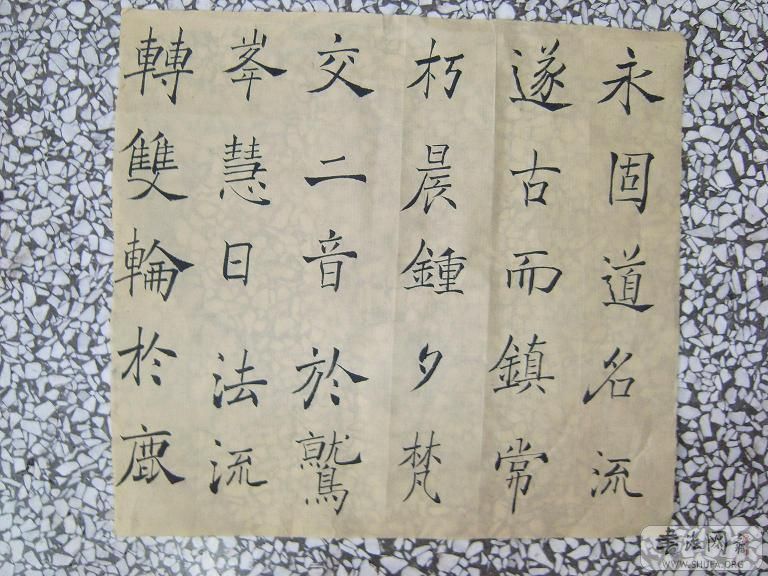 永固道名流
遂古而鎮常
朽晨鍾夕梵
交二音於鷲
峯慧日法流
轉雙輪於鹿
书法网
WWW.SHUFA.ORG